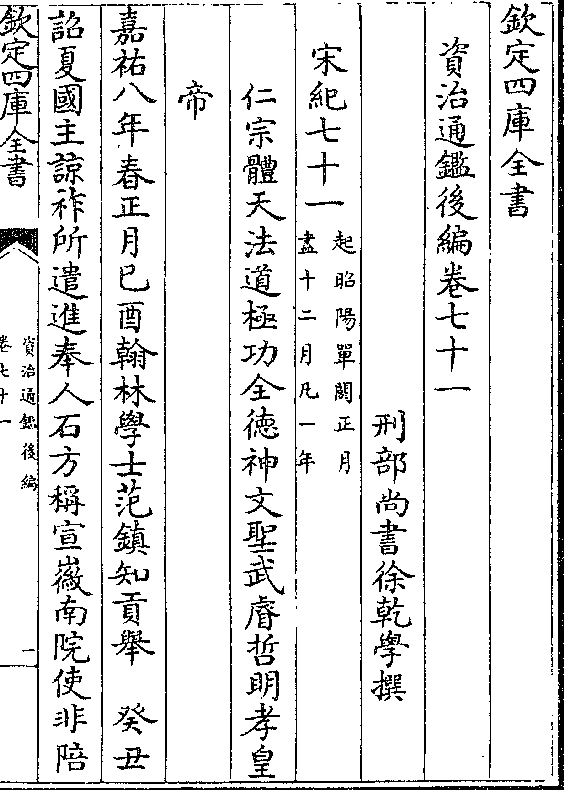 欽定四庫全書
資治通鑑後編卷七十一
刑部尚書徐乾學撰
宋紀七十一
起昭陽單閼正月
盡十二月凡一年
仁宗體天法道極功全徳神文聖武睿哲明孝皇
帝
嘉祐八年春正月己酉翰林學士范鎮知貢舉　癸丑
詔夏國主諒祚所遣進奉人石方稱宣徽南院使非陪
欽定四庫全書
資治通鑑後編
卷七十一
一